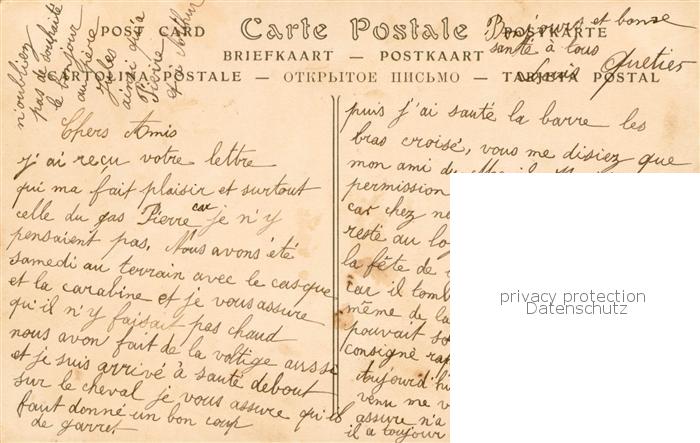 POST CARD Carte Postale POSTKARTE
BRIEFKAART — POSTKAART
CARTOLINA POSTALE — ОТКРЫТОЕ ПИСЬМО — TARJETA POSTAL
n'oubliez
pas de souhaité
le bonjour
au frère
Jules
ainsi qu'a
et a Arthur
Bonjours et bonne
santé à tous
Louis Quetier
Chers Amis
j'ai reçu votre lettre
qui ma fait plaisir et surtout
celle du gas Pierre car je n'y
pensaient pas, Nous avons été
samedi au terrain avec le casque
et la carabine et je vous assure
qu'il n'y faisait pas chaud
nous avon fait de la voltige aussi
et je suis arrivé à sauté debout
sur le cheval je vous assure qu'il
faut donné un bon coup
de garret
puis j'ai sauté la barre les
bras croisé, vous me disiez que
mon ami du
permission
car chez
resté au
la fête de
car il
même de la
pouvait
consigné
Aujourd'hui
venu me
assure n'a
il a toujour
privacy protection
Datenschutz